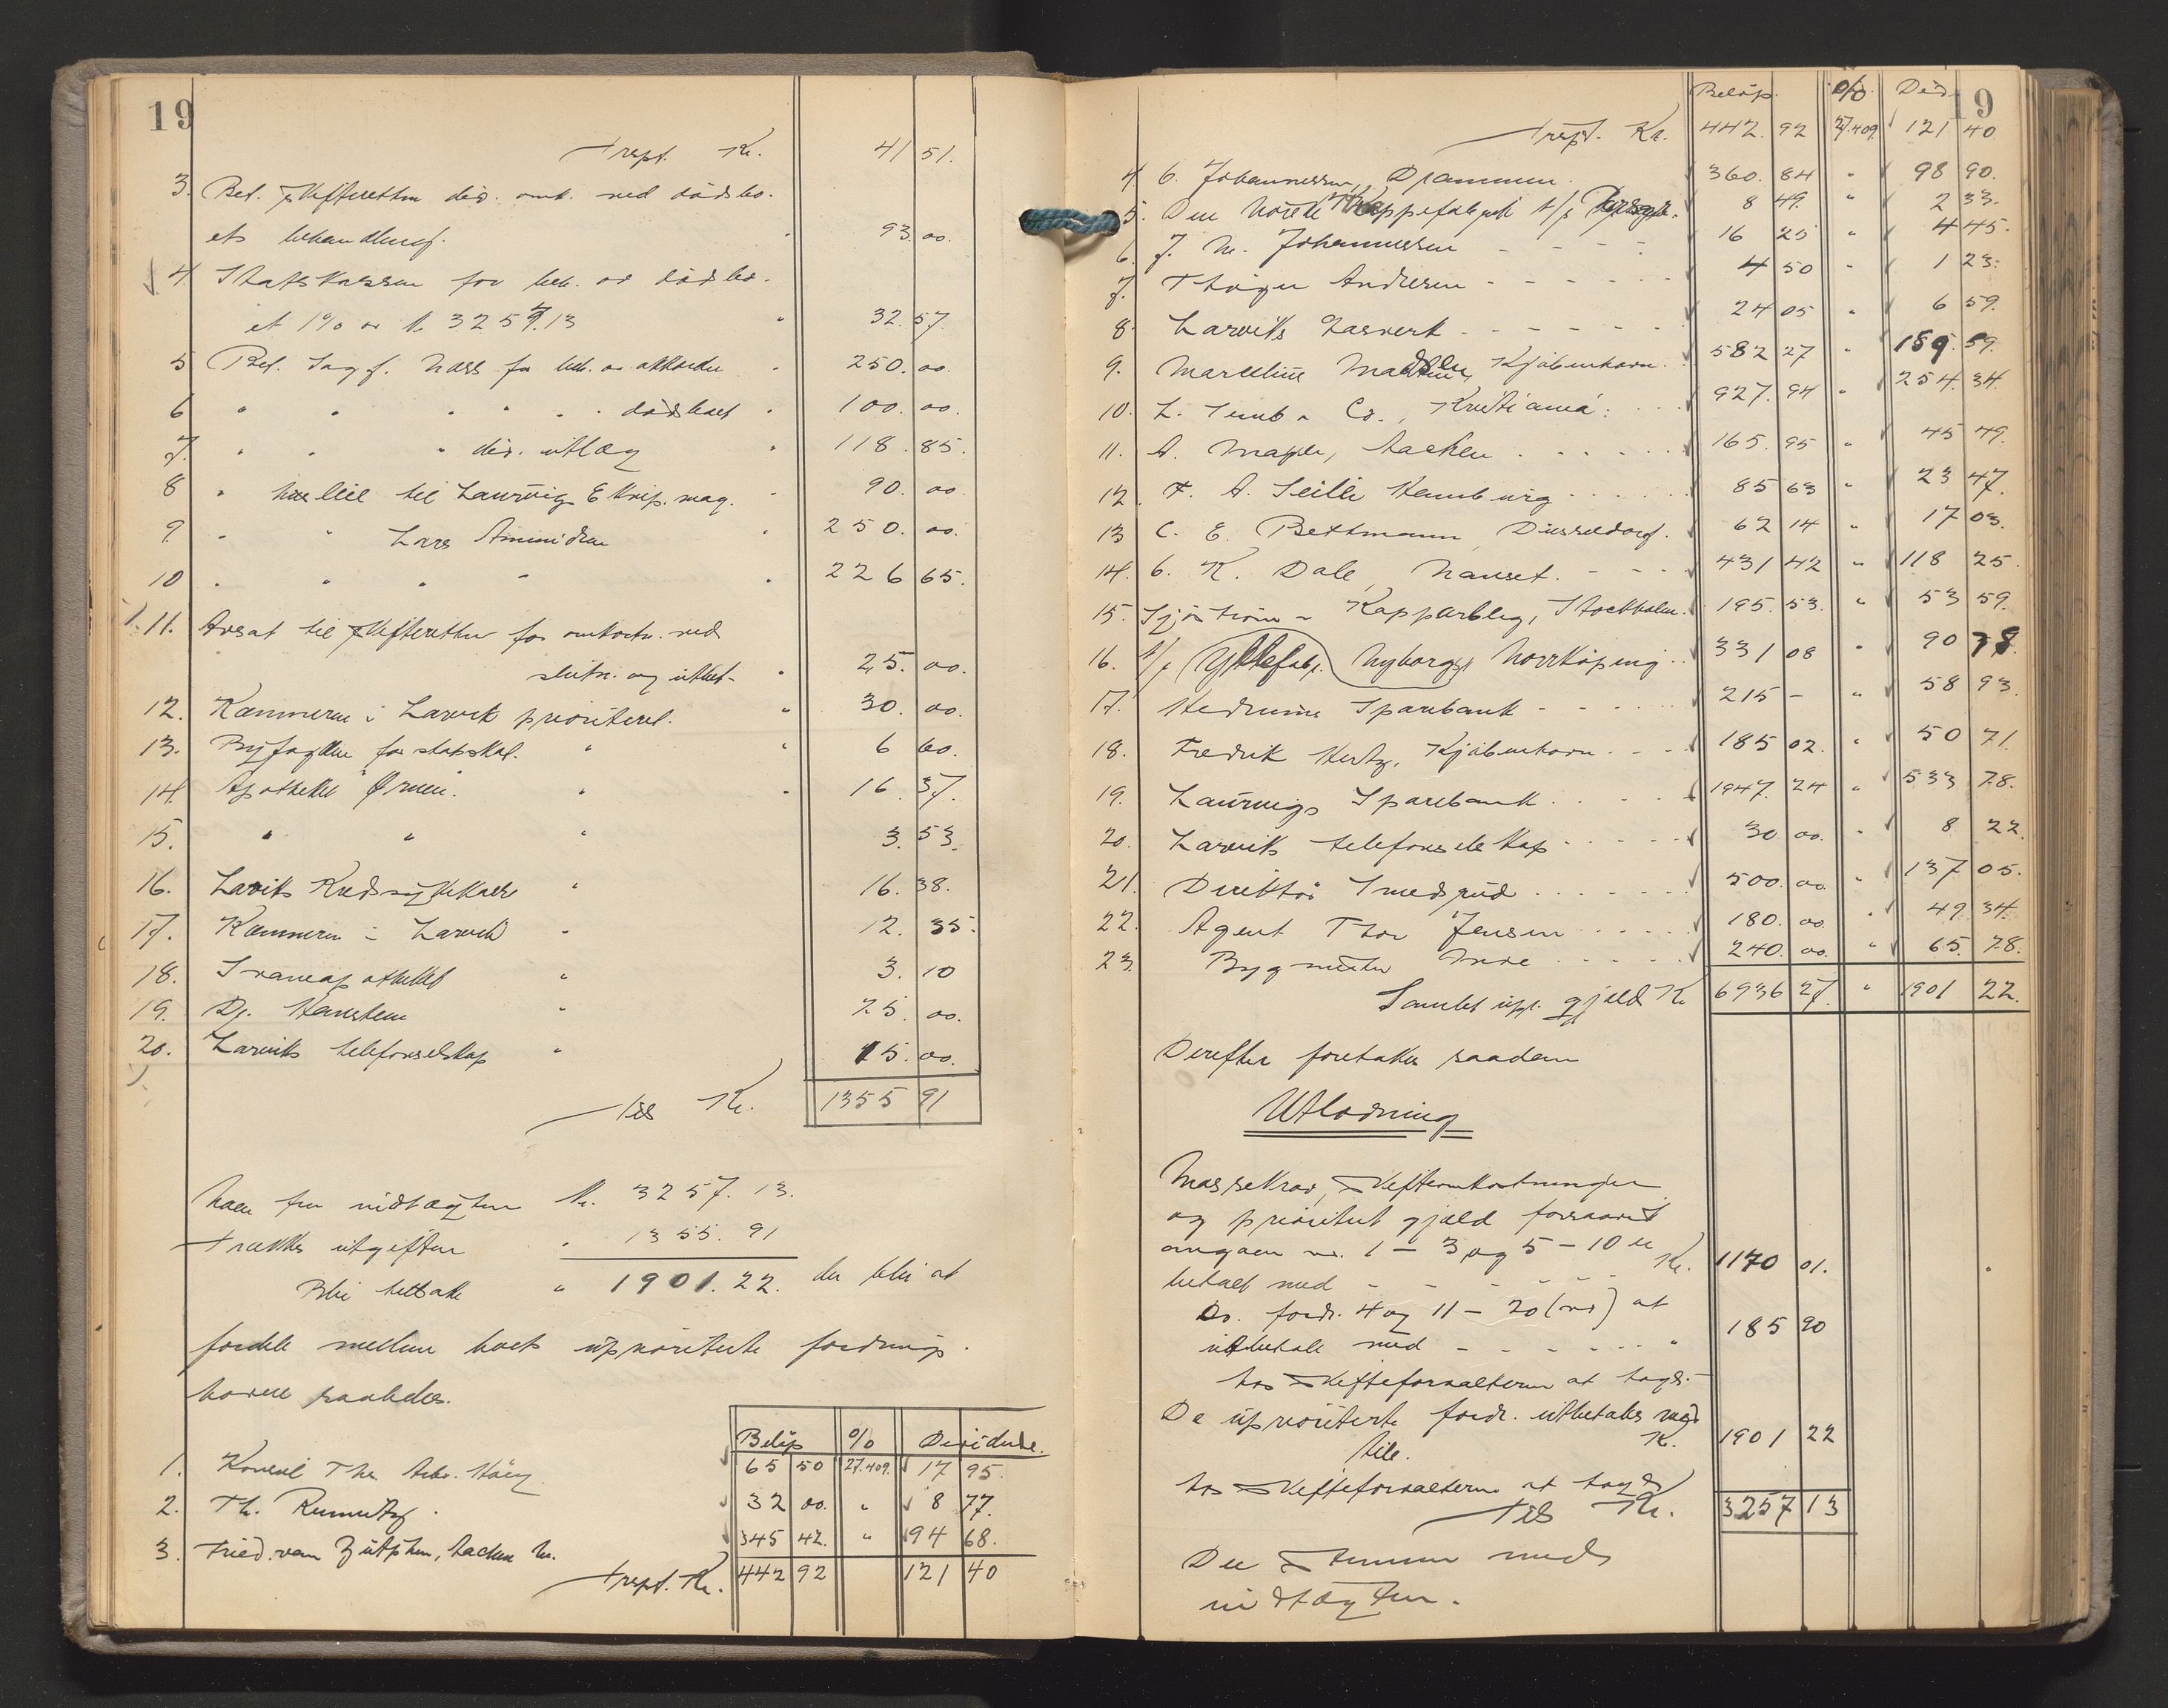 19
Trspt. Kr. 41 51.
3. Bet. Skifteretten div. omk. ved dödsbo-
ets behandling. " 93. 00.
4 Statskassen for beh. av dödsbo-
et 1% av kr 3257.13 " 32. 57.
5 Bet. Sagf. Nass for beh. av akkorden " 250. 00.
6 " " " " " " dödsboet " 100. 00.
7. " " " div. utlæg " 118. 85.
8 " husleie til Laurvigs Ekvip. mag. " 90. 00
9 " " Lars Amundsen " 250. 00.
10 " " " " " 226 65.
11. Avsat til Skifteretten for omkostn. ved
slutn. og utbet- " 25. 00.
12. Kæmneren i Larvik prioritert. " 30. 00.
13. Byfogden for statsskat. " " 6 60.
14. Apotheket Ørnen. " " 16. 37.
15. " " " 3. 53.
16. Larviks Kredssykekasse " 16. 38.
17. Kæmneren i Larvik " 12. 35.
18. Svaneapotheket " 3. 10
19. Dr. Hansteen " 25. 00.
20. Larviks telefonselskap " 15. 00.
Tils Kr. 1355 91
Naar fra indtægten Kr. 3257. 13.
trækkes utgiften " 1355. 91
Blir tilbake " 1901. 22. der blir at
fordele mellem boets uprioriterte fordrings-
havere saaledes.
Beløp % Dividende.
1. Konsul Thr. Arb. Höeg 65 50 27.409. 17 95.
2. Th. 32 00. " 8 77.
3. Fried. van Zütphen, Aachen 345 42. " 94 68.
Trspt. Kr. 442 92 121 40
19
Beløp. % Div.
Trspt. Kr. 442. 92 27.409 121 40
4 C. Johannessen, Drammen. 360. 84 " 98 90.
5. Den norske Trappefabrik A/S 8 49. " 2 33.
6. J. M. Johannessen - - - - 16 25 " 4 45.
7. Thöger Andresen - - - - - 4 50 " 1 23.
8. Larviks Gasverk - - - - - - 24 05 " 6 59.
9. Marcelius Madsen, Kjöbenhavn. 582 27 " 159. 59.
10. L. Semb & Co., Kristiania. 927. 94 " 254. 34.
11. A. Mayer, Aachen . . . . . . 165. 95 " 45 49.
12. F. A. Seille Hamburg . . . . . . 85 63 " 23 47.
13 C. E. Bethmann Düsseldorf. 62 14 " 17 03.
14. C. K. Dale, Nanset. - - - - 431 42 " 118 25.
15. Sjöström & Kopparberg, Stockholm. 195. 53. " 53 59.
16. A/S Yllefabr. Nyborg, Norrköping . . 331 08 " 90 78.
17. Hedrums Sparebank - - - - - 215 - " 58 93.
18. Fredrik Hertz, Kjöbenhavn - - - 185 02. " 50 71.
19. Laurvigs Sparebank . . . . . 1947. 24 " 533 78.
20. Larviks telefonselskap - - - - - 30 00. " 8 22.
21. Direktör Smedsrud . . . . . . . 500. 00. " 137 05.
22. Agent Thor Jensen . . . . . 180. 00. " 49. 34.
23. Bygmester Moe . . . . . 240. 00. " 65. 78.
Samlet upr. gjeld Kr 6936 27. " 1901 22.
Derefter foretakes saadan
Utlodning
Massekrav, skifteomkostninger
og prioritert gjæld forsaavidt
angaar nr. 1 - 3 og 5 - 10 er
betalt med - - - - - - Kr. 1170 01.
Do. fordr. 4 og 11 - 20 (nr) at
utbetale med - - - - - . . . " 185 90
hos Skifteforvalteren at hæve.
De uprioriterte fordr. utbetales med
tils. Kr. 1901 22
hos Skifteforvalteren at hæve
Tils Kr. 3257 13
Det stemmer med
indtægten.